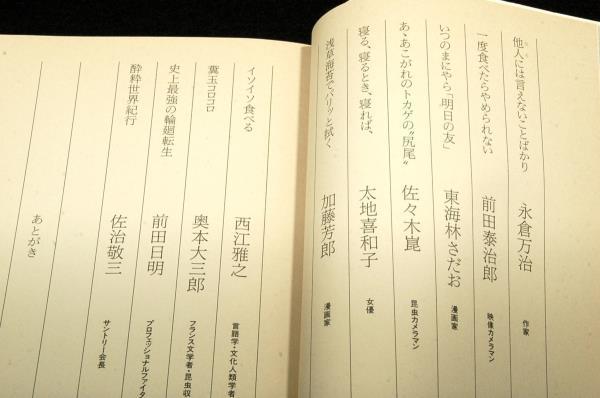 他人には言えないことばかり 永倉万治 作家
一度食べたらやめられない 前田泰治郎 映像カメラマン
いつのまにやら「明日の友」 東海林さだお 漫画家
あゝあこがれのトカゲの〝尻尾〟 佐々木崑 昆虫カメラマン
寝る、寝るとき、寝れば、 太地喜和子 女優
浅草海苔でパリッと拭く 加藤芳郎 漫画家
イソイソ食べる 西江雅之 言語学・文化人類学者
糞玉コロコロ 奥本大三郎 フランス文学者・昆虫収
史上最強の輪廻転生 前田日明 プロフェッショナルファイタ
酔粋世界紀行 佐治敬三 サントリー会長
あとがき